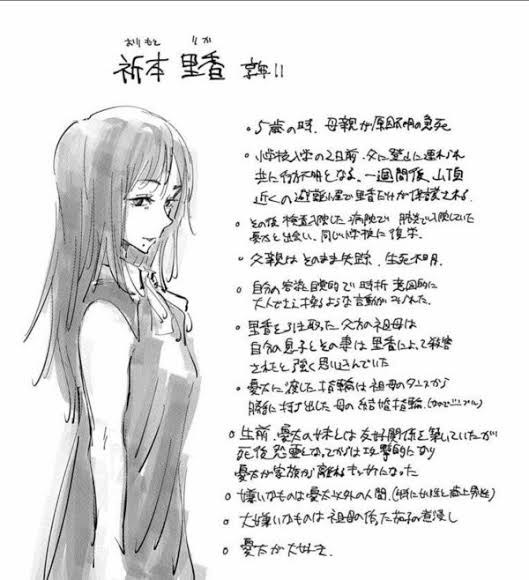 おりもと りか
祈本 里香 享年11
・5歳の時、母親が原因不明の急死
・小学校入学の2日前、父に登山に連れられ
共に行方不明となる。一週間後、山頂
近くの避難小屋で里香だけが保護される。
・その後検査入院した病院で、肺炎で入院していた
憂太と出会い、同じ小学校に復学。
・父親はそのまま失踪、生死不明。
・自分の容姿に自覚的で時折、老獪的に
大人でさえ操るような言動がみられた。
・里香を引き取った父方の祖母は
自分の息子とその妻は里香によって殺害
されたと強く思い込んでいた
・憂太に渡した指輪は祖母のタンスから
勝手に持ち出した母の結婚指輪。
・生前、憂太の妹とは友好関係を築いていたが
死後、怨霊となってからは攻撃的になり
憂太が家族から離れるきっかけになった
・嫌いなものは憂太以外の人間。(特に女性と
・大嫌いなものは祖母の作った茄子の煮浸し
・憂太が大好き。